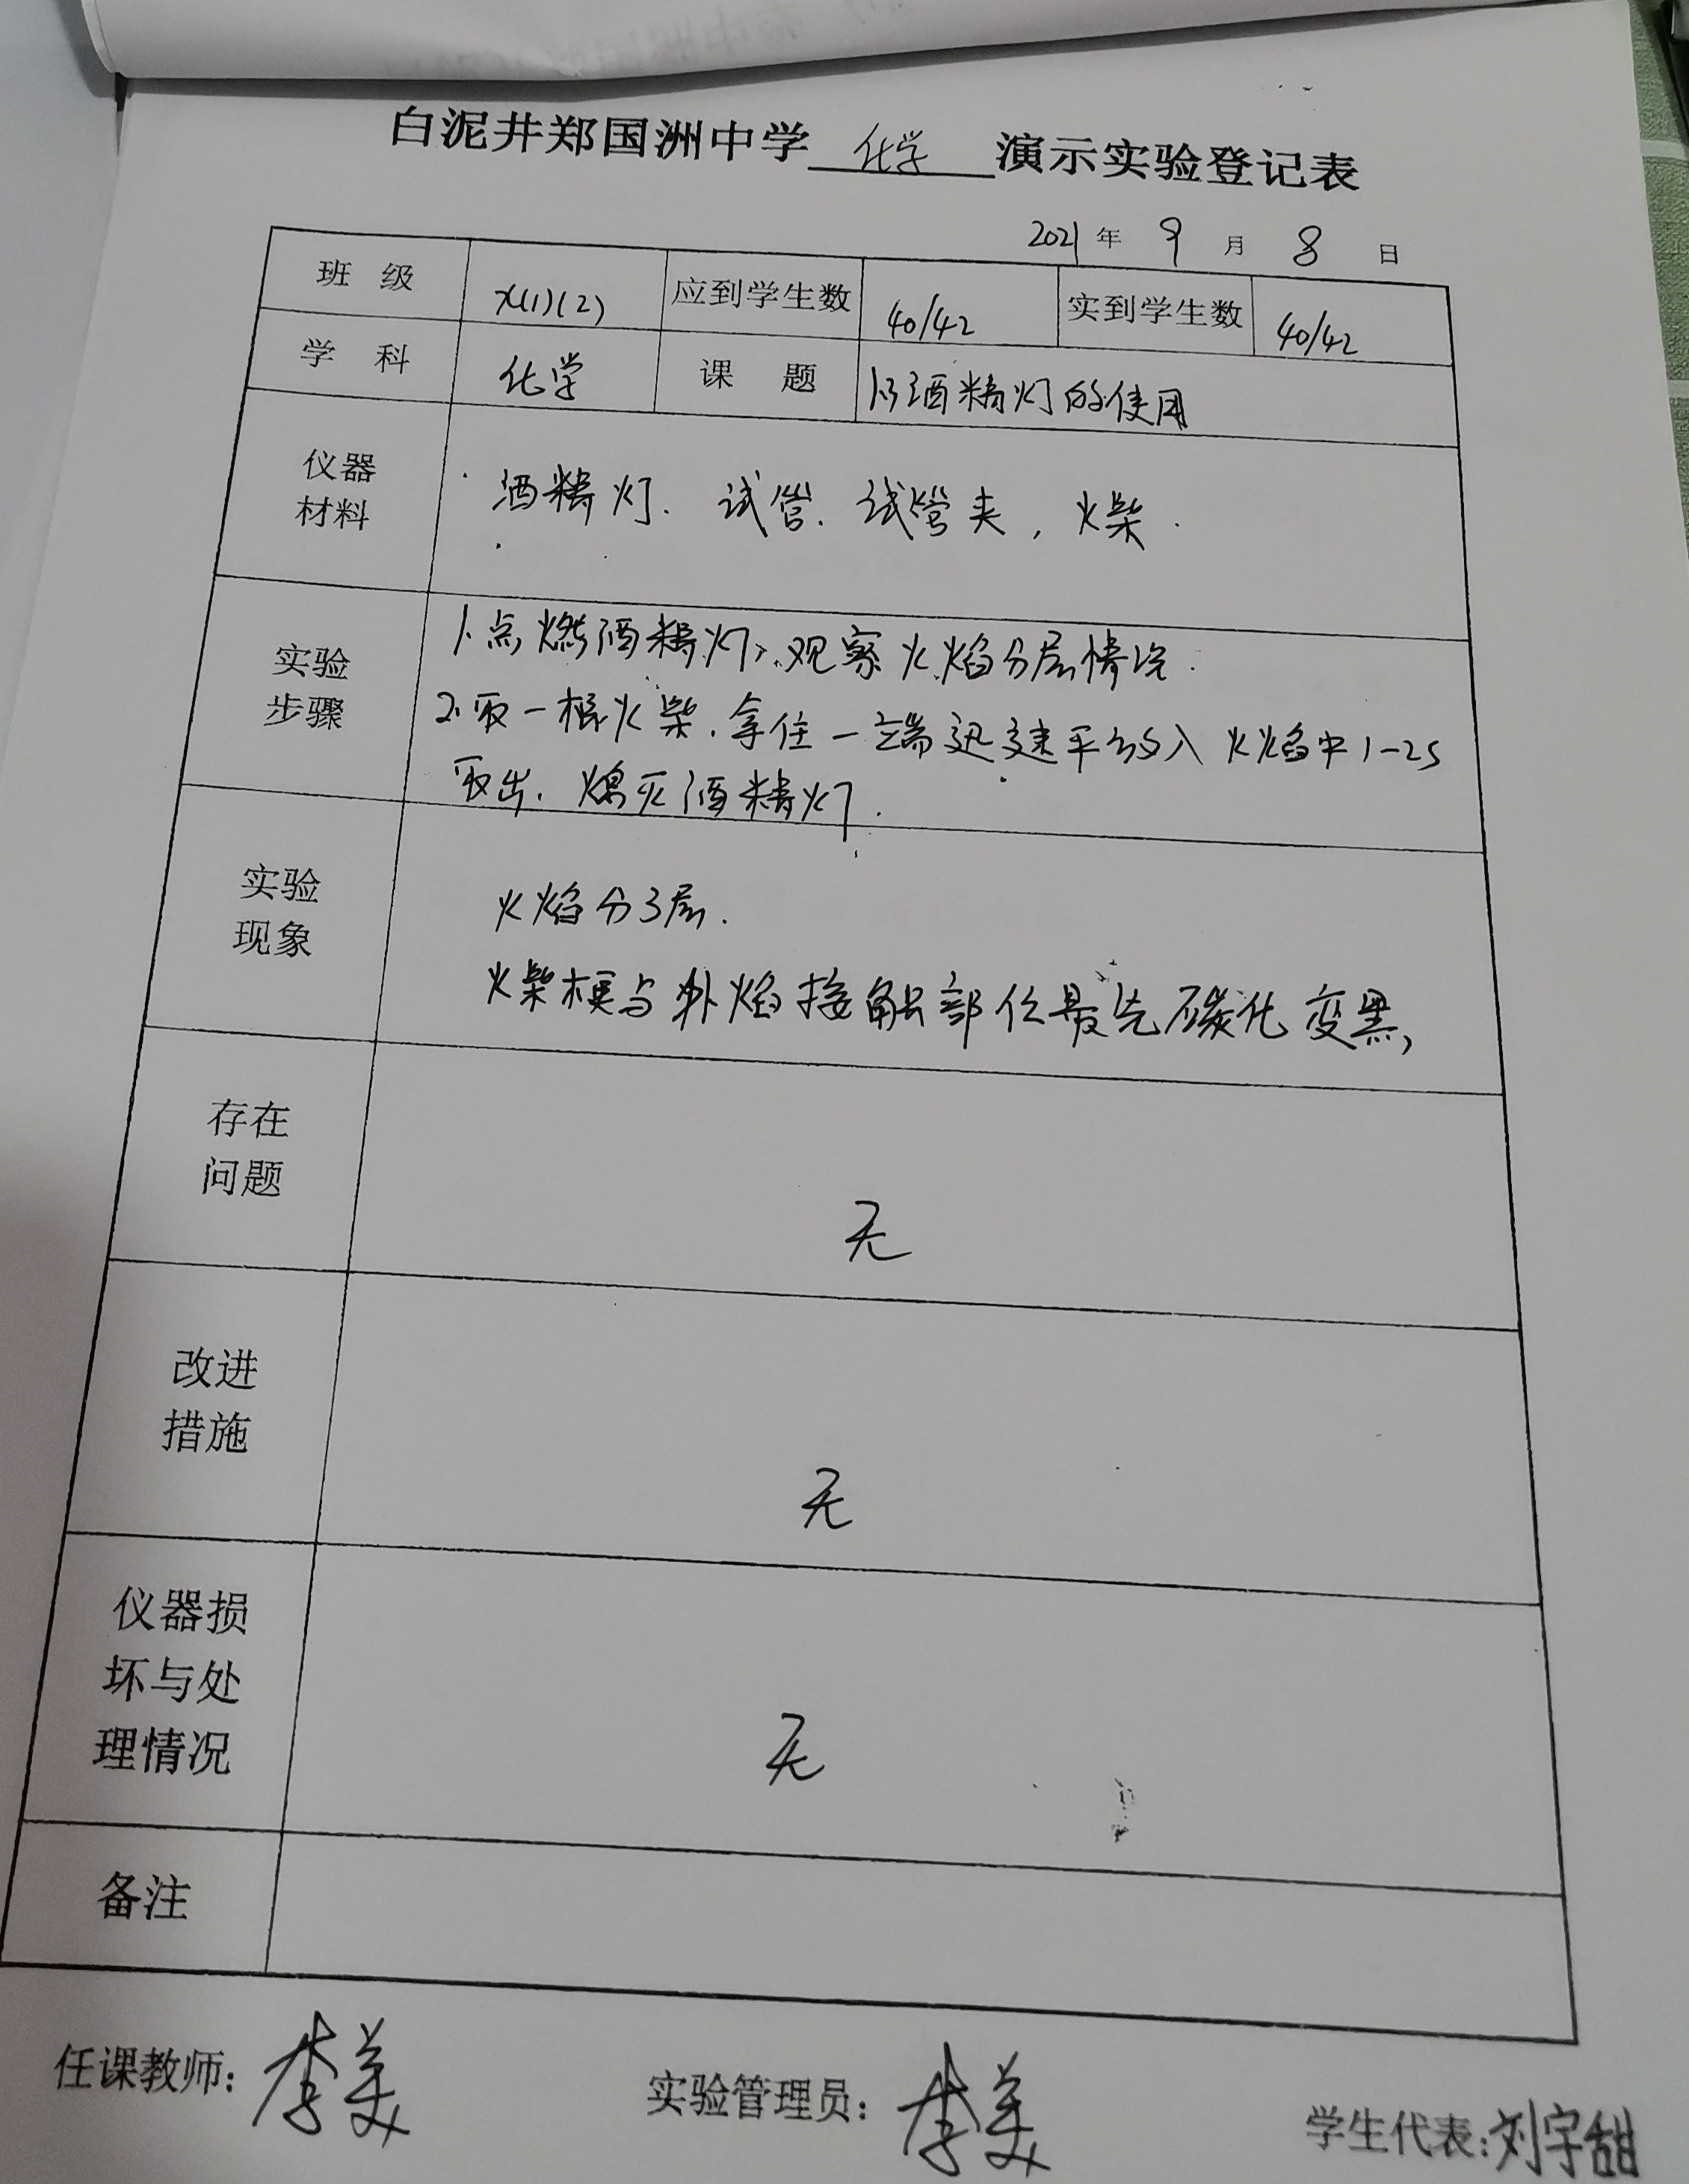 白泥井郑国洲中学 化学 演示实验登记表
2021 年 9 月 8 日
班 级 九(1)(2) 应到学生数 40/42 实到学生数 40/42
学 科 化学 课 题 酒精灯的使用
仪器
材料
酒精灯. 试管. 试管夹, 火柴.
实验
步骤
1.点燃酒精灯, 观察火焰分层情况.
2.取一根火柴.拿住一端迅速平放入火焰中1-2s
取出. 熄灭酒精灯.
实验
现象
火焰分3层.
火柴梗与外焰接触部位最先碳化变黑,
存在
问题
无
改进
措施
无
仪器损
坏与处
理情况
无
备注
任课教师: 李美 实验管理员: 李美 学生代表: 刘宇甜